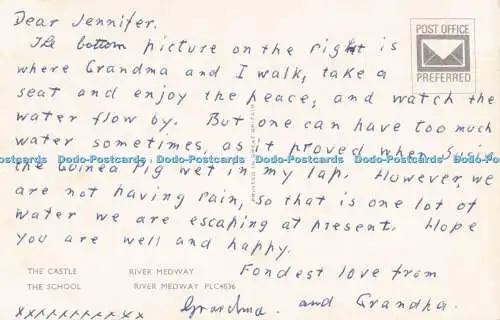 Dear Jennifer.
The bottom picture on the right is
where Grandma and I walk, take a
seat and enjoy the peace, and watch the
water flow by. But one can have too much
water sometimes, as it proved when Susie
the Guinea Pig wet in my lap. However, we
are not having rain, so that is one lot of
water we are escaping at present. Hope
you are well and happy.
Fondest love from
Grandma and Grandpa.
xxxxxxxxxx
POST OFFICE
PREFERRED
Dodo-Postcards Dodo-Postcards Dodo-Postcards Dodo-Postcards Dodo-Postcards Dodo-Postcards
THE CASTLE RIVER MEDWAY
THE SCHOOL RIVER MEDWAY PLC4636